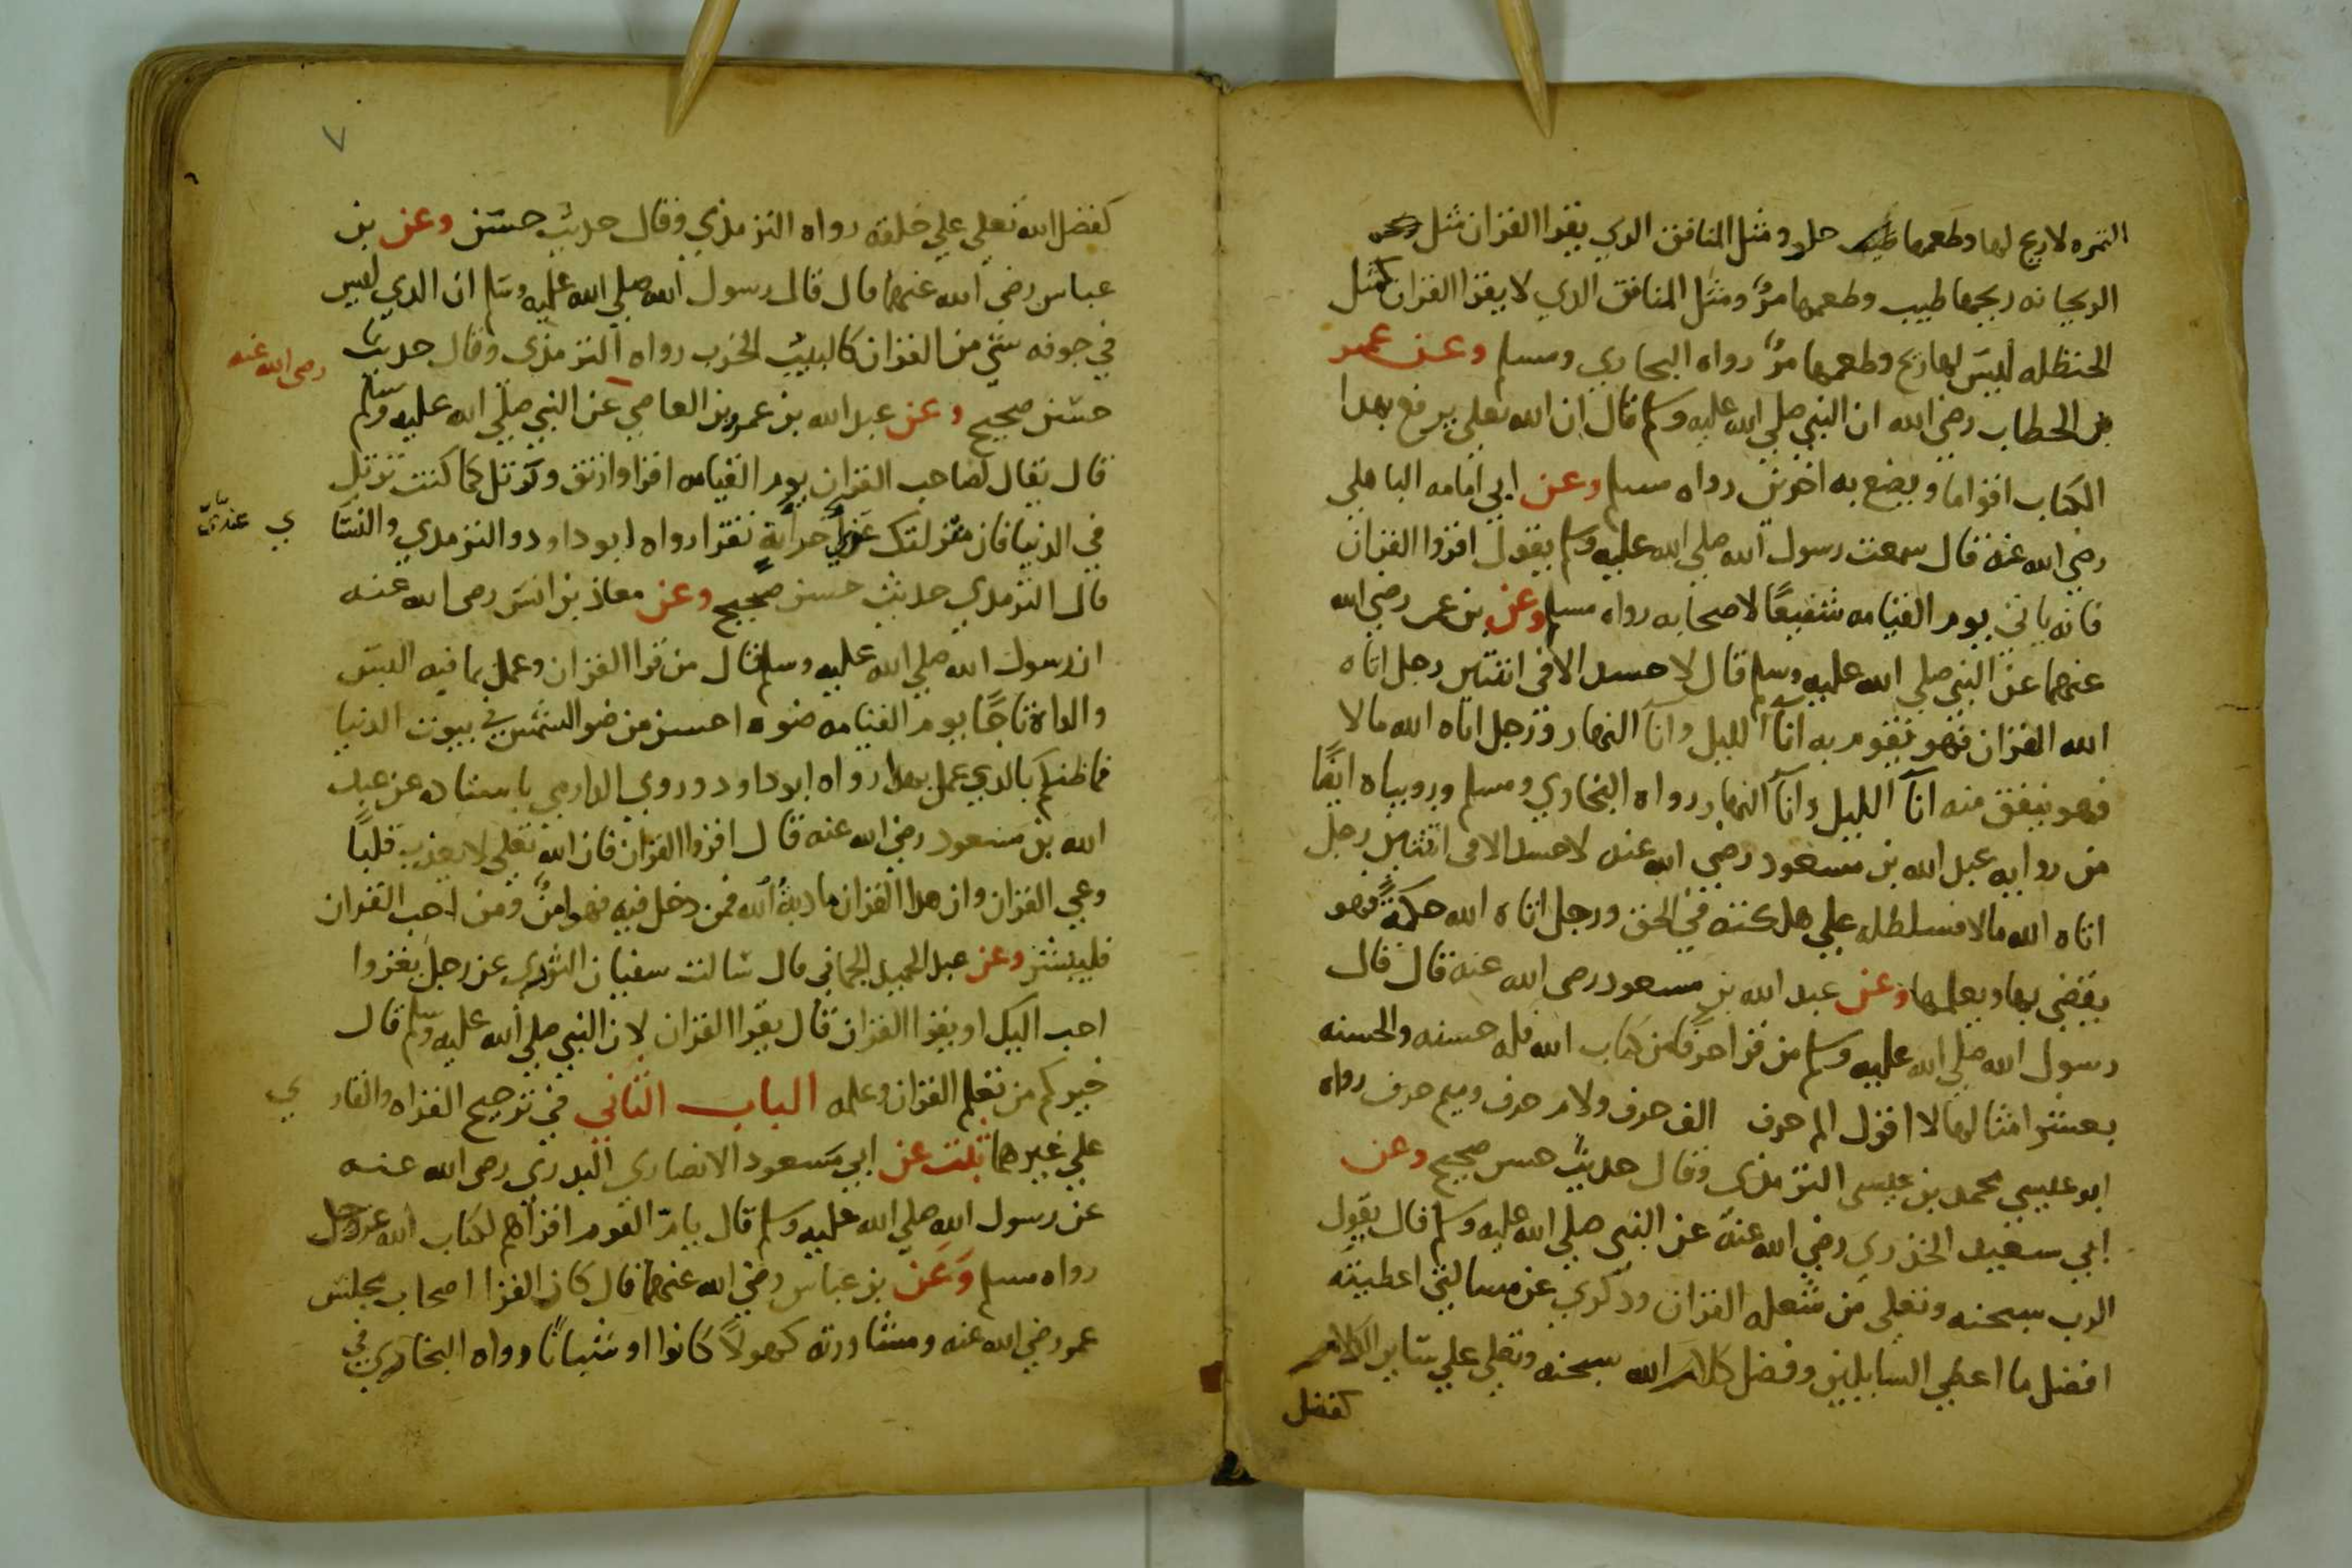 التمره لا ريح لها وطعمها حلو ومثل المنافق الذي يقرا القران مثل
الريحانه ريحها طيب وطعمها مرٌّ ومثل المنافق الذي لا يقرا القران كمثل
الحنظله ليس لها ريح وطعمها مرٌّ رواه البخاري ومسلم وعن عمر
بن الخطاب رضي الله ان النبي صلي الله عليه وسلم قال ان الله تعلي يرفع بهدا
الكتاب اقواما ويضع به اخرين رواه مسلم وعن ابي امامه الباهلي
رضي الله عنه قال سمعت رسول الله صلي الله عليه وسلم يقول اقروا القران
فانه ياتي يوم القيامه شفيعًا لاصحابه رواه مسلم وعن بن عمر رضي الله
عنهما عن النبي صلي الله عليه وسلم قال لا حسد الا في اثنتين رجل اتاه
الله القران فهو يقوم به انآ الليل وانآ النهار ورجل اتاه الله مالا
فهو ينفق منه انآ الليل وانآ النهار رواه البخاري ومسلم ورويناه ايضًا
من روايه عبد الله بن مسعود رضي الله عنه لا حسد الا في اثنتين رجل
اتاه الله مالا فسلطله علي هلكته في الحق ورجل اتاه الله حكمةً فهو
يقضي بها ويعلمها وعن عبد الله بن مسعود رضى الله عنه قال قال
رسول الله صلي الله عليه وسلم من قرا حرفًا من كتاب الله فله حسنه والحسنه
بعشر امثالها لا اقول الم حرف الف حرف ولام حرف وميم حرف رواه
ابو عيسي محمد بن عيسى الترمذي وقال حديث حسن صحيح وعن
ابي سعيد الخذري رضي الله عنه عن النبي صلي الله عليه وسلم قال يقول
الرب سبحنه وتعلي من شعله القران وذكري عن مسالتي اعطيته
افضل ما اعطي السايلين وفضل كلام الله سبحنه وتعلى علي ساير الكلام
كفضل
٧
كفضل الله تعلي علي خلقه رواه الترمذي وقال حديث حسن وعن بن
عباس رضي الله عنهما قال قال رسول الله صلي الله عليه وسلم ان الدي ليس
في جوفه شي من القران كالبيت الخرب رواه الترمذي وقال حديث
حسن صحيح وعن عبد الله بن عمرو بن العاصي عن النبي صلي الله عليه وسلم
رضى الله عنه
قال يقال لصاحب القران يوم القيامه اقرا وارتق ورتل كما كنت ترتل
في الدنيا فان منزلتك اخر اية تقرا رواه ابو داود والترمدي والنسا
ي
قال الترمدي حديث حسن صحيح وعن معاذ بن انس رضى الله عنه
ان رسول الله صلي الله عليه وسلم قال من قرا القران وعمل بما فيه البس
والداه تاجًا يوم القيامه ضوه احسن من ضو الشمس في بيوت الدنيا
فما ظنكم بالدي عمل بهدا رواه ابو داود وروي الدارمي باسناده عن عبد
الله بن مسعود رضي الله عنه قال اقروا القران فان الله تعلي لا يعذب قلبًا
وعي القران وان هدا القران مادبةُ الله فمن دخل فيه فهو امنٌ ومن احب القران
فليبشر وعن عبد الحميد الحماني قال سالت سفيان الثوري عن رجل يغزوا
احب اليك او يقرا القران قال يقرا القران لان النبي صلي الله عليه وسلم قال
خيركم من تعلم القران وعلمه الباب الثاني في ترجيح القراه والقار
ي
علي غيرهما ثبت عن ابي مسعود الانصاري البدري رضى الله عنه
عن رسول الله صلي الله عليه وسلم قال يامّ القوم اقراهم لكتاب الله عز وجل
رواه مسلم وَعَن بن عباس رضي الله عنهما قال كان القرا اصحاب مجلس
عمر رضي الله عنه ومشاورته كهولاً كانوا او شبانًا رواه البخاري في